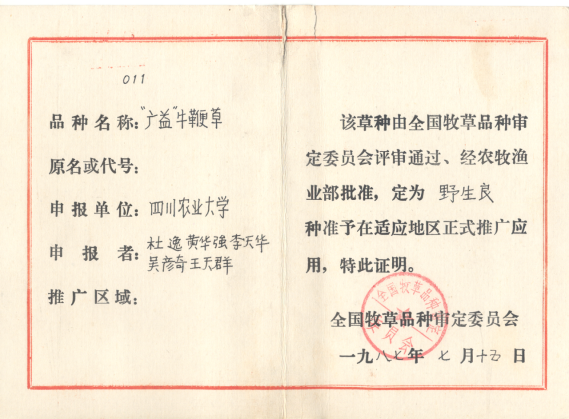 011
品种名称:"广益"牛鞭草
原名或代号:
申报单位:四川农业大学
申报者:杜逸 黄华强 李天华
吴彦奇 王天群
推广区域:
该草种由全国牧草品种审
定委员会评审通过、经农牧渔
业部批准,定为 野生良
种准予在适应地区正式推广应
用,特此证明。
全国牧草品种审定委员会
一九八七年 七月十五日